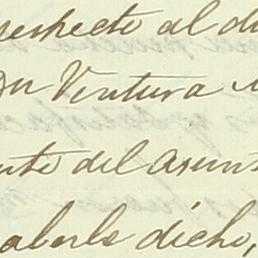 respecto al
Dn Ventura
del asun
haberle dicho,